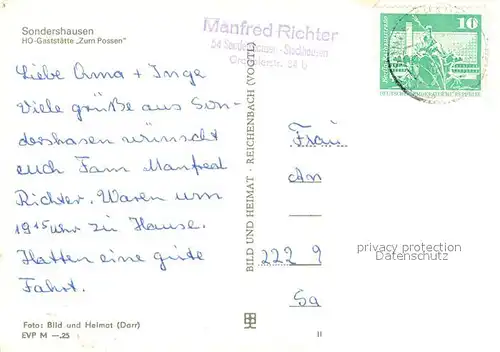 Sondershausen
HO-Gaststätte „Zum Possen"
Manfred Richter
54 Sondershausen - Stockhausen
10
Liebe Oma + Inge
Viele grüße aus Son-
dershasen wünscht
euch Fam Manfred
Richter. Waren um
19¹⁵ uhr zu Hause.
Hatten eine gute
Fahrt.
BILD UND HEIMAT · REICHENBACH (VOGTL)
Frau
An
222 9
Sa
privacy protection
Datenschutz
Foto: Bild und Heimat (Darr)
EVP M —.25